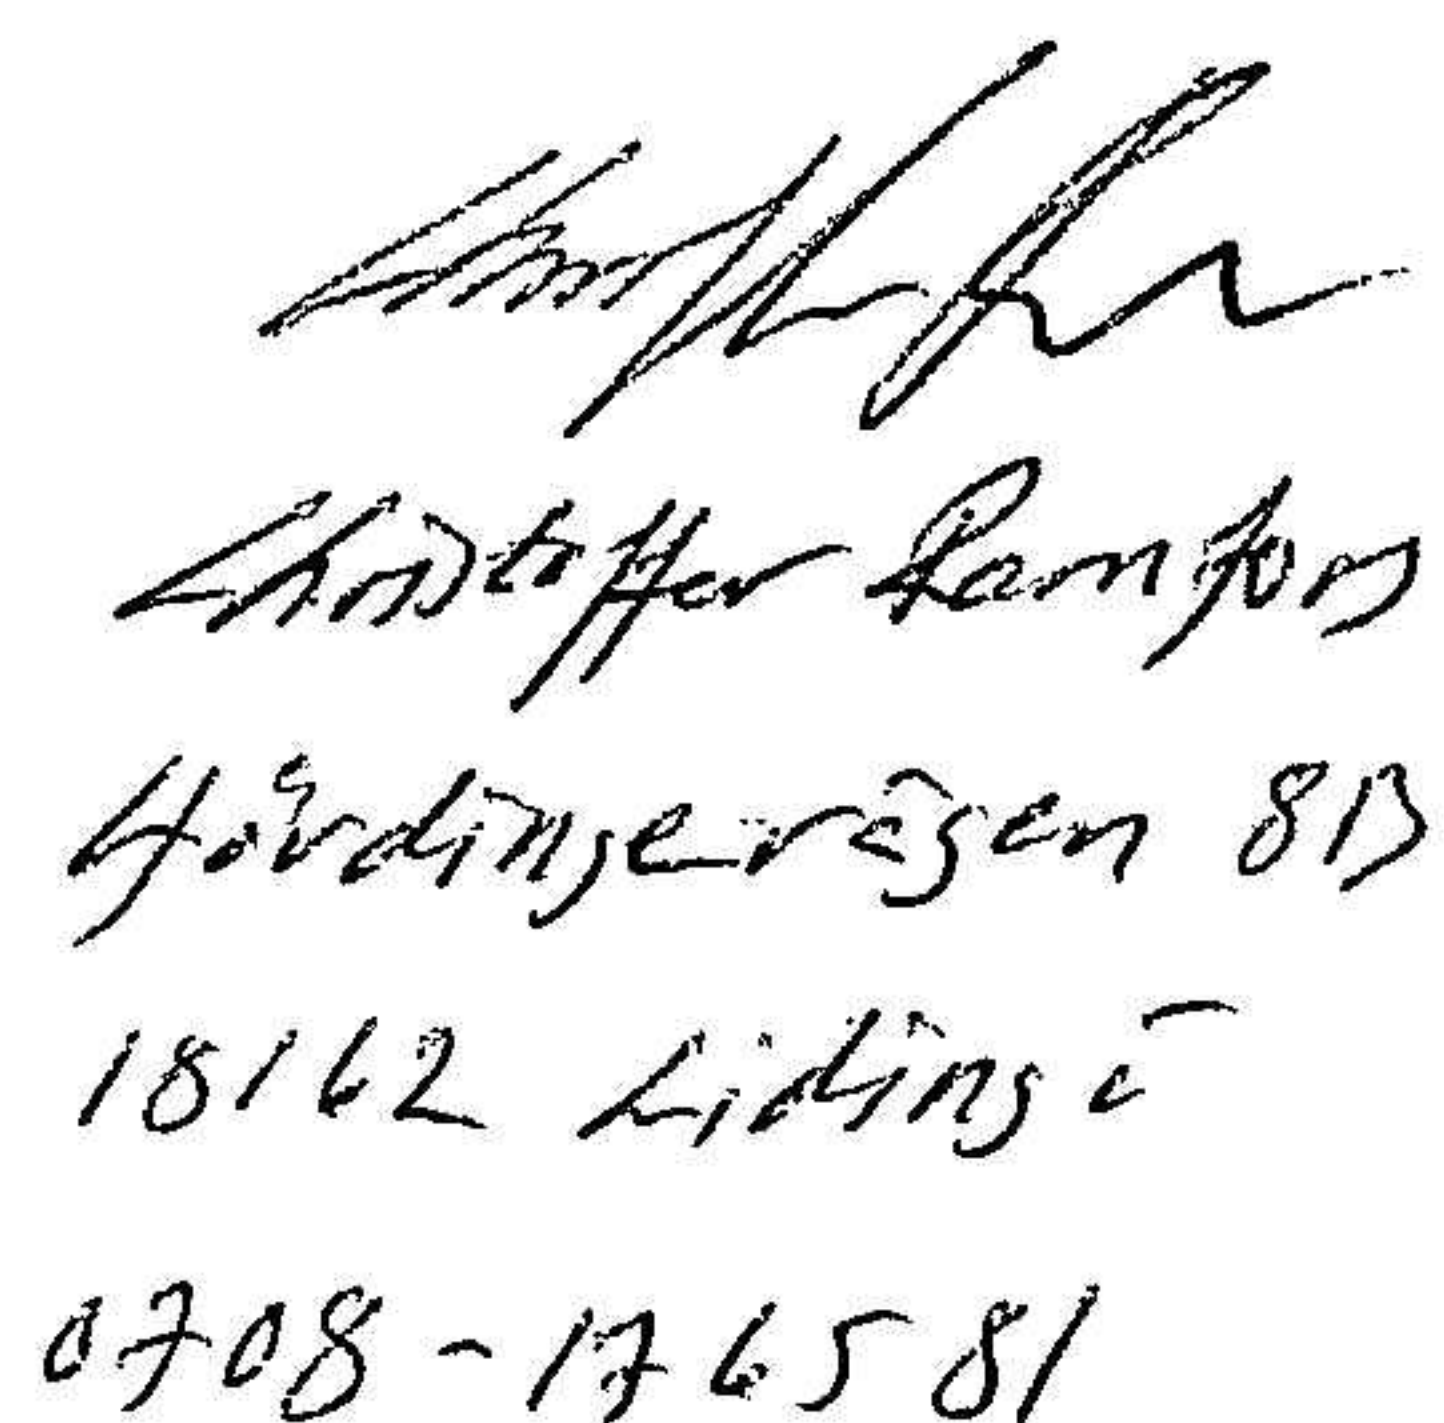 Christoffer Ramfors
Hövdingevägen 8B
18162 Lidingö
0708-176581